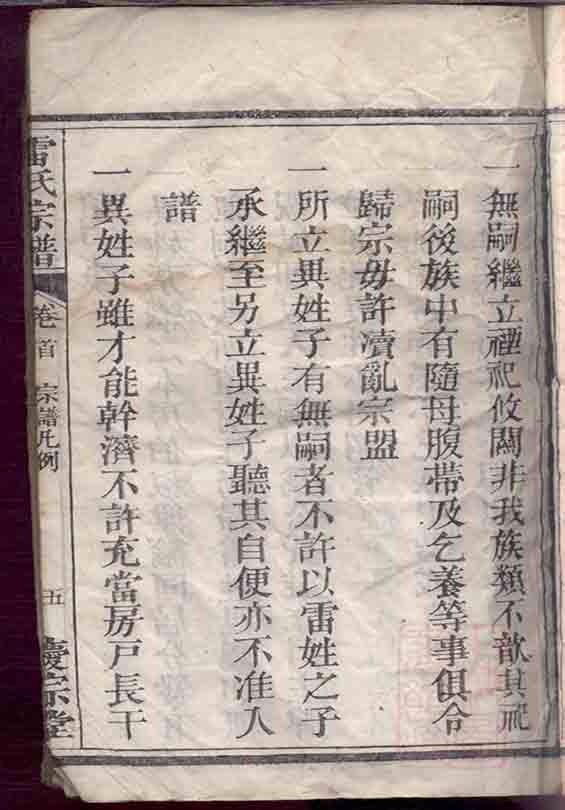 一無嗣繼立禋祀攸關非我族類不歆其祀
嗣後族中有隨母腹帶及乞養等事俱合
歸宗毋許瀆亂宗盟
一所立異姓子有無嗣者不許以雷姓之子
承繼至另立異姓子聽其自便亦不准入
譜
一異姓子雖才能幹濟不許充當房戶長干
雷氏宗譜 卷首 宗譜凡例 五 慶宗堂